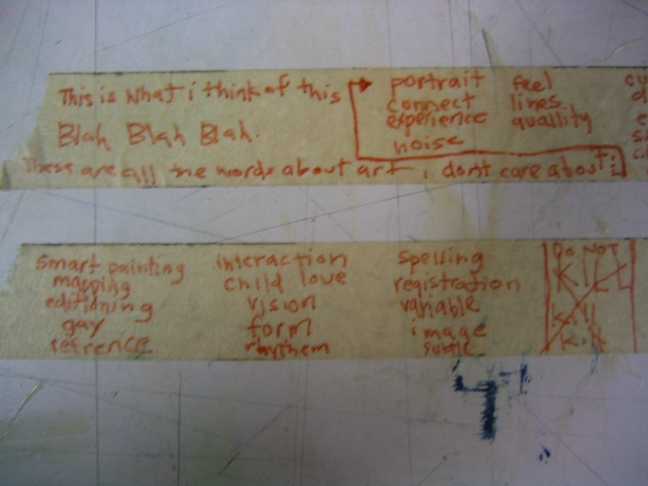 This is what i think of this
Blah Blah Blah.
These are all the words about art i dont care about:
portrait feel
connect lines
experience quallity
noise
smart painting interaction spelling
mapping child love registration
editioning vision variable
gay form image
refrence rhythem subtle
DO NOT
KILL
KILL